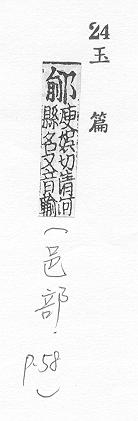 24
玉篇
鄃
庾娛切清河
縣名又音輸
(邑部.
p.58)